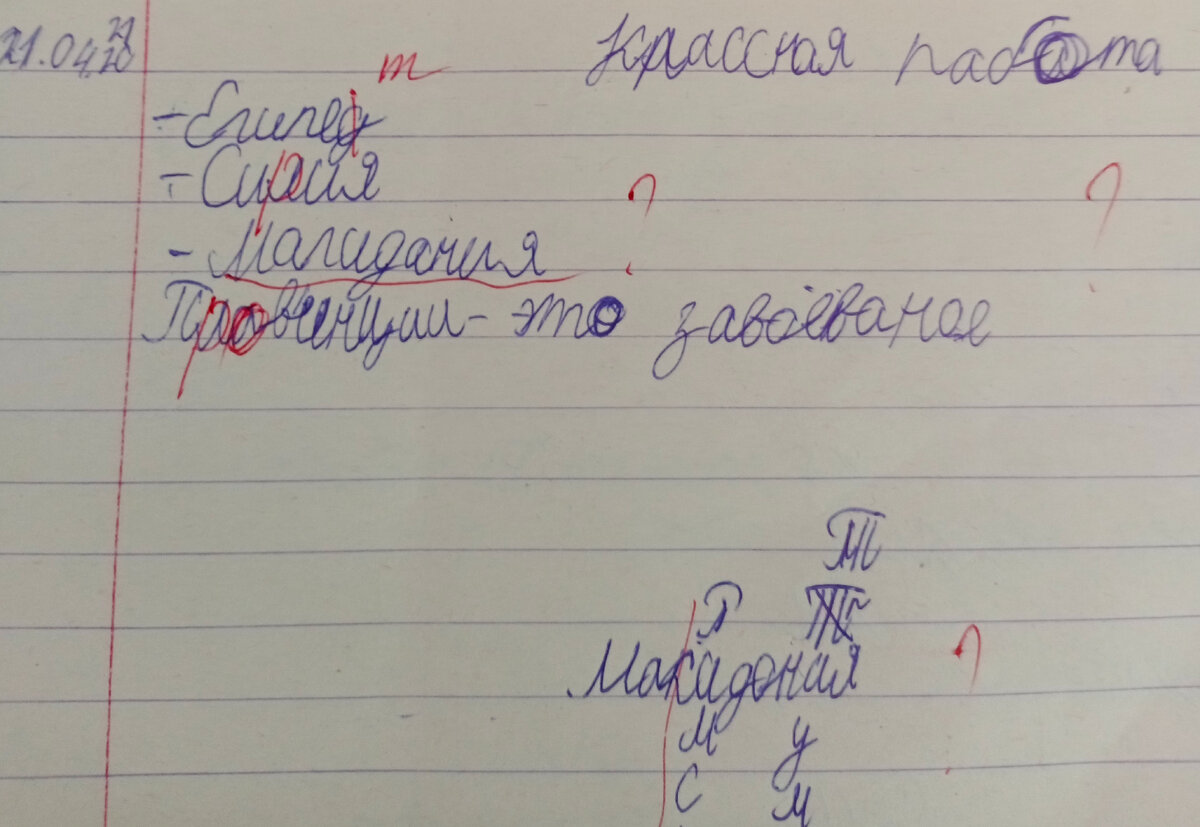 21.04. Крассная пабота
т
- Египед
- Сирия
- Магидания
Провинции - это завоёваное
П
Макадония
М у
С м